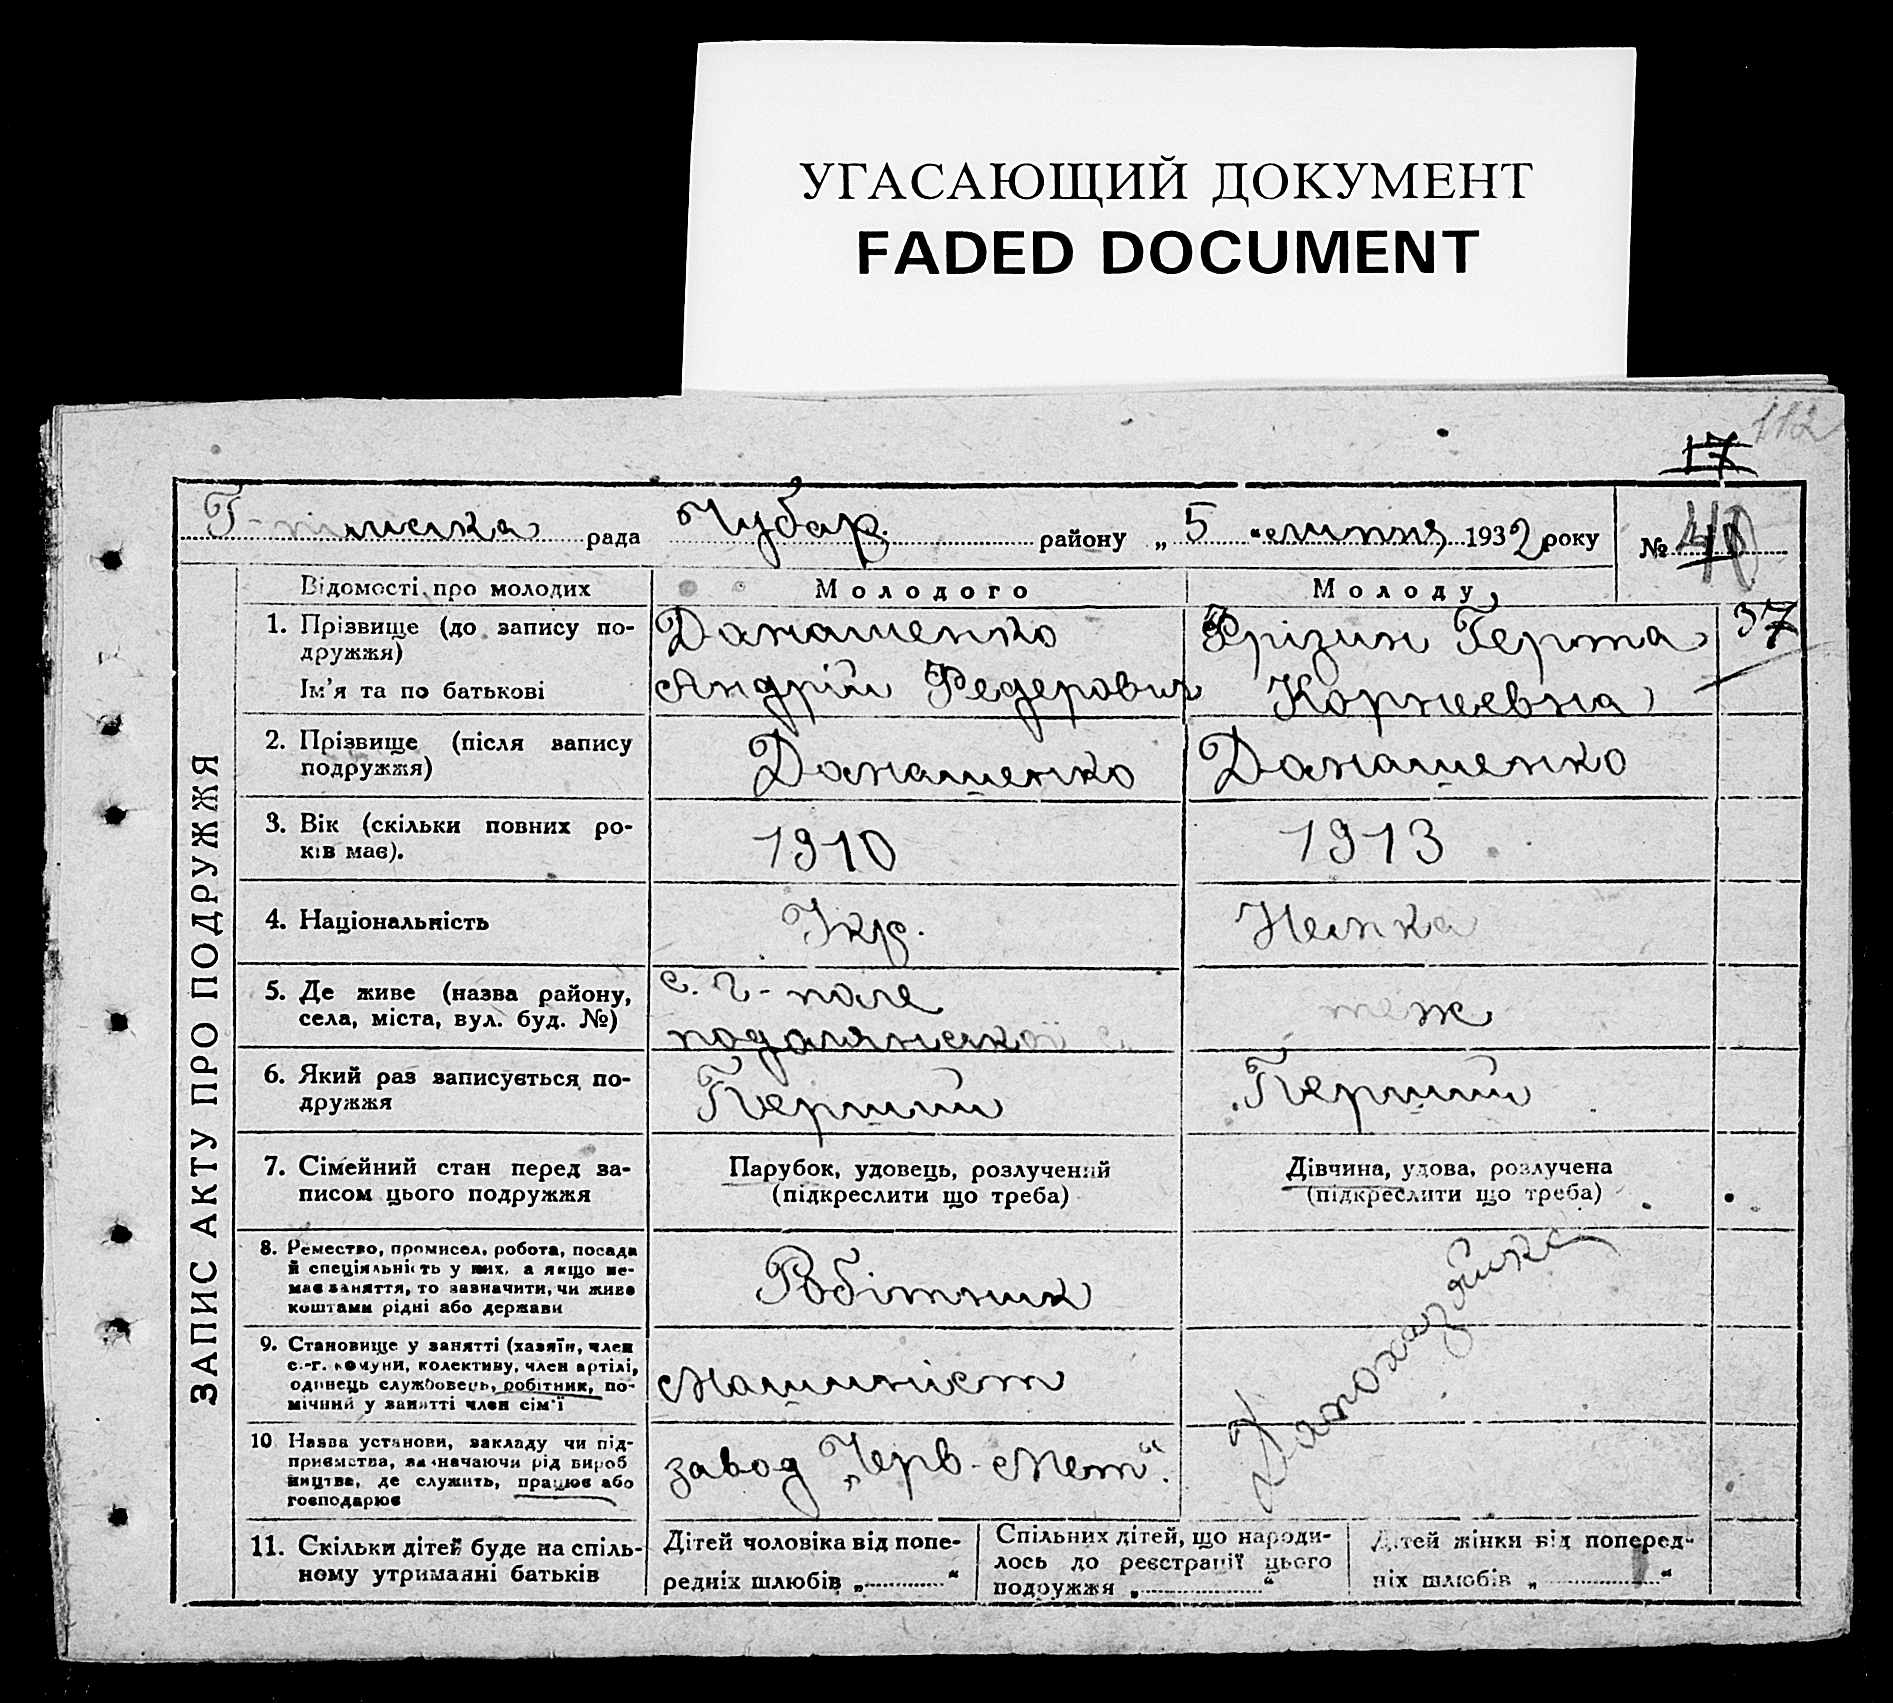 УГАСАЮЩИЙ ДОКУМЕНТ
FADED DOCUMENT
112
17
рада Чубар. району „ 5 “ липня 1932 року № 40
ЗАПИС АКТУ ПРО ПОДРУЖЖЯ
Відомості про молодих Молодого Молоду
1. Прізвище (до запису по-
дружжя)
Ім'я та по батькові
Данашенко
Андрій Федерович
Фрізин Герта
Корнеевна
37
2. Прізвище (після запису
подружжя)
Данашенко Данашенко
3. Вік (скільки повних ро-
ків має).
1910 1913
4. Національність Укр. Немка
5. Де живе (назва району,
села, міста, вул. буд. №)
с. Г-поле
подолянської с.
теж
6. Який раз записується по-
дружжя
Перший Перший
7. Сімейний стан перед за-
писом цього подружжя
Парубок, удовець, розлучений
(підкреслити що треба)
Дівчина, удова, розлучена
(підкреслити що треба)
8. Ремество, промисел, робота, посада
й спеціяльність у них, а якщо не-
має заняття, то зазначити, чи живе
коштами рідні або держави
Робітник
Домохазяйка
9. Становище у занятті (хазяїн, член
с.-г. комуни, колективу, член артілі,
одинець службовець, робітник, по-
мічний у занятті член сім'ї
Машиніст
10 Назва установи, закладу чи під-
приємства, зазначаючи рід вироб
ництва, де служить, працює або
господарює
завод „Черв-Мет“.
11. Скільки дітей буде на спіль-
ному утриманні батьків
Дітей чоловіка від попе-
редніх шлюбів „ “
Спільних дітей, що народи-
лось до реєстрації цього
подружжя „ “
Дітей жінки від поперед-
ніх шлюбів „ “